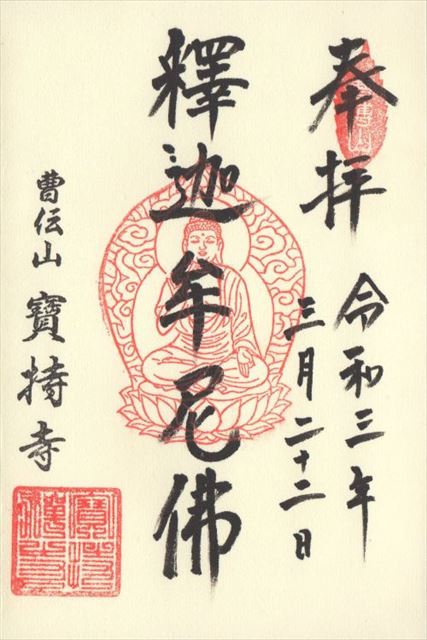 奉拝
令和三年
三月二十二日
釋迦牟尼佛
曹伝山 寶持寺